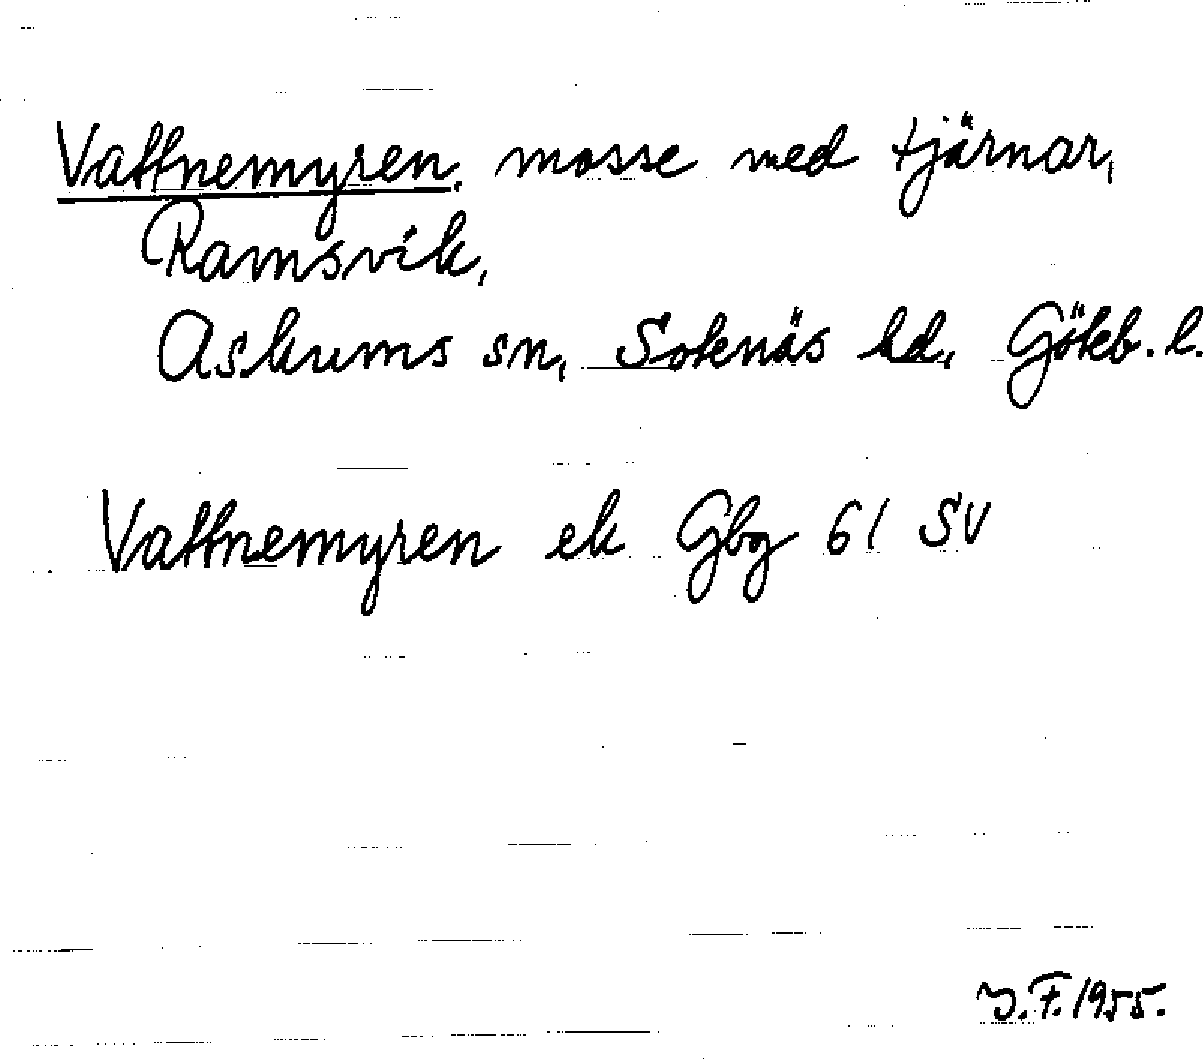 Vattnemyren, mosse med tjärnar,
Ramsvik,
Askums sn, Sotenäs hd, Göteb. l.
Vattnemyren ek Gbg 61 SV
J.F. 1955.